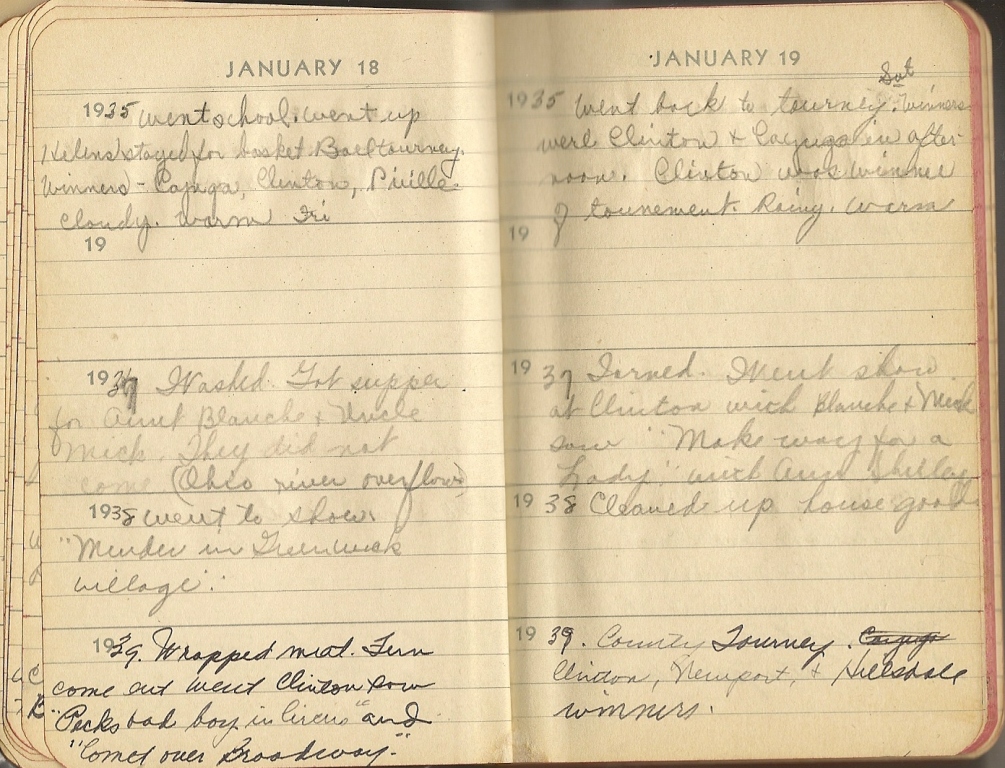 JANUARY 18
1935 went school. went up
Helens stayed for basket Ball tourney.
Winners - Cayuga, Clinton, P'ville.
Cloudy. Warm Fri
19
1937 Washed. Got supper
for Aunt Blanche & Uncle
Mick. They did not
come (Ohio river overflows)
1938 went to show.
"Murder in Greenwich
village".
1939. Wrapped meat. Fern
come out went Clinton saw
"Pecks bad boy in Circus" and
"Comet over Broadway."
JANUARY 19
Sat
1935 Went back to tourney. Winners
were Clinton & Cayuga in after-
noon. Clinton was winner
of tournement. Rainy. Warm
19
1937 Ironed. Went show
at Clinton with Blanche & Mick
saw "Make way for a
Lady" with Ann Shirley
1938 Cleaned up house good.
1939. County Tourney. Cayuga
Clinton, Newport, & Hillsdale
winners.